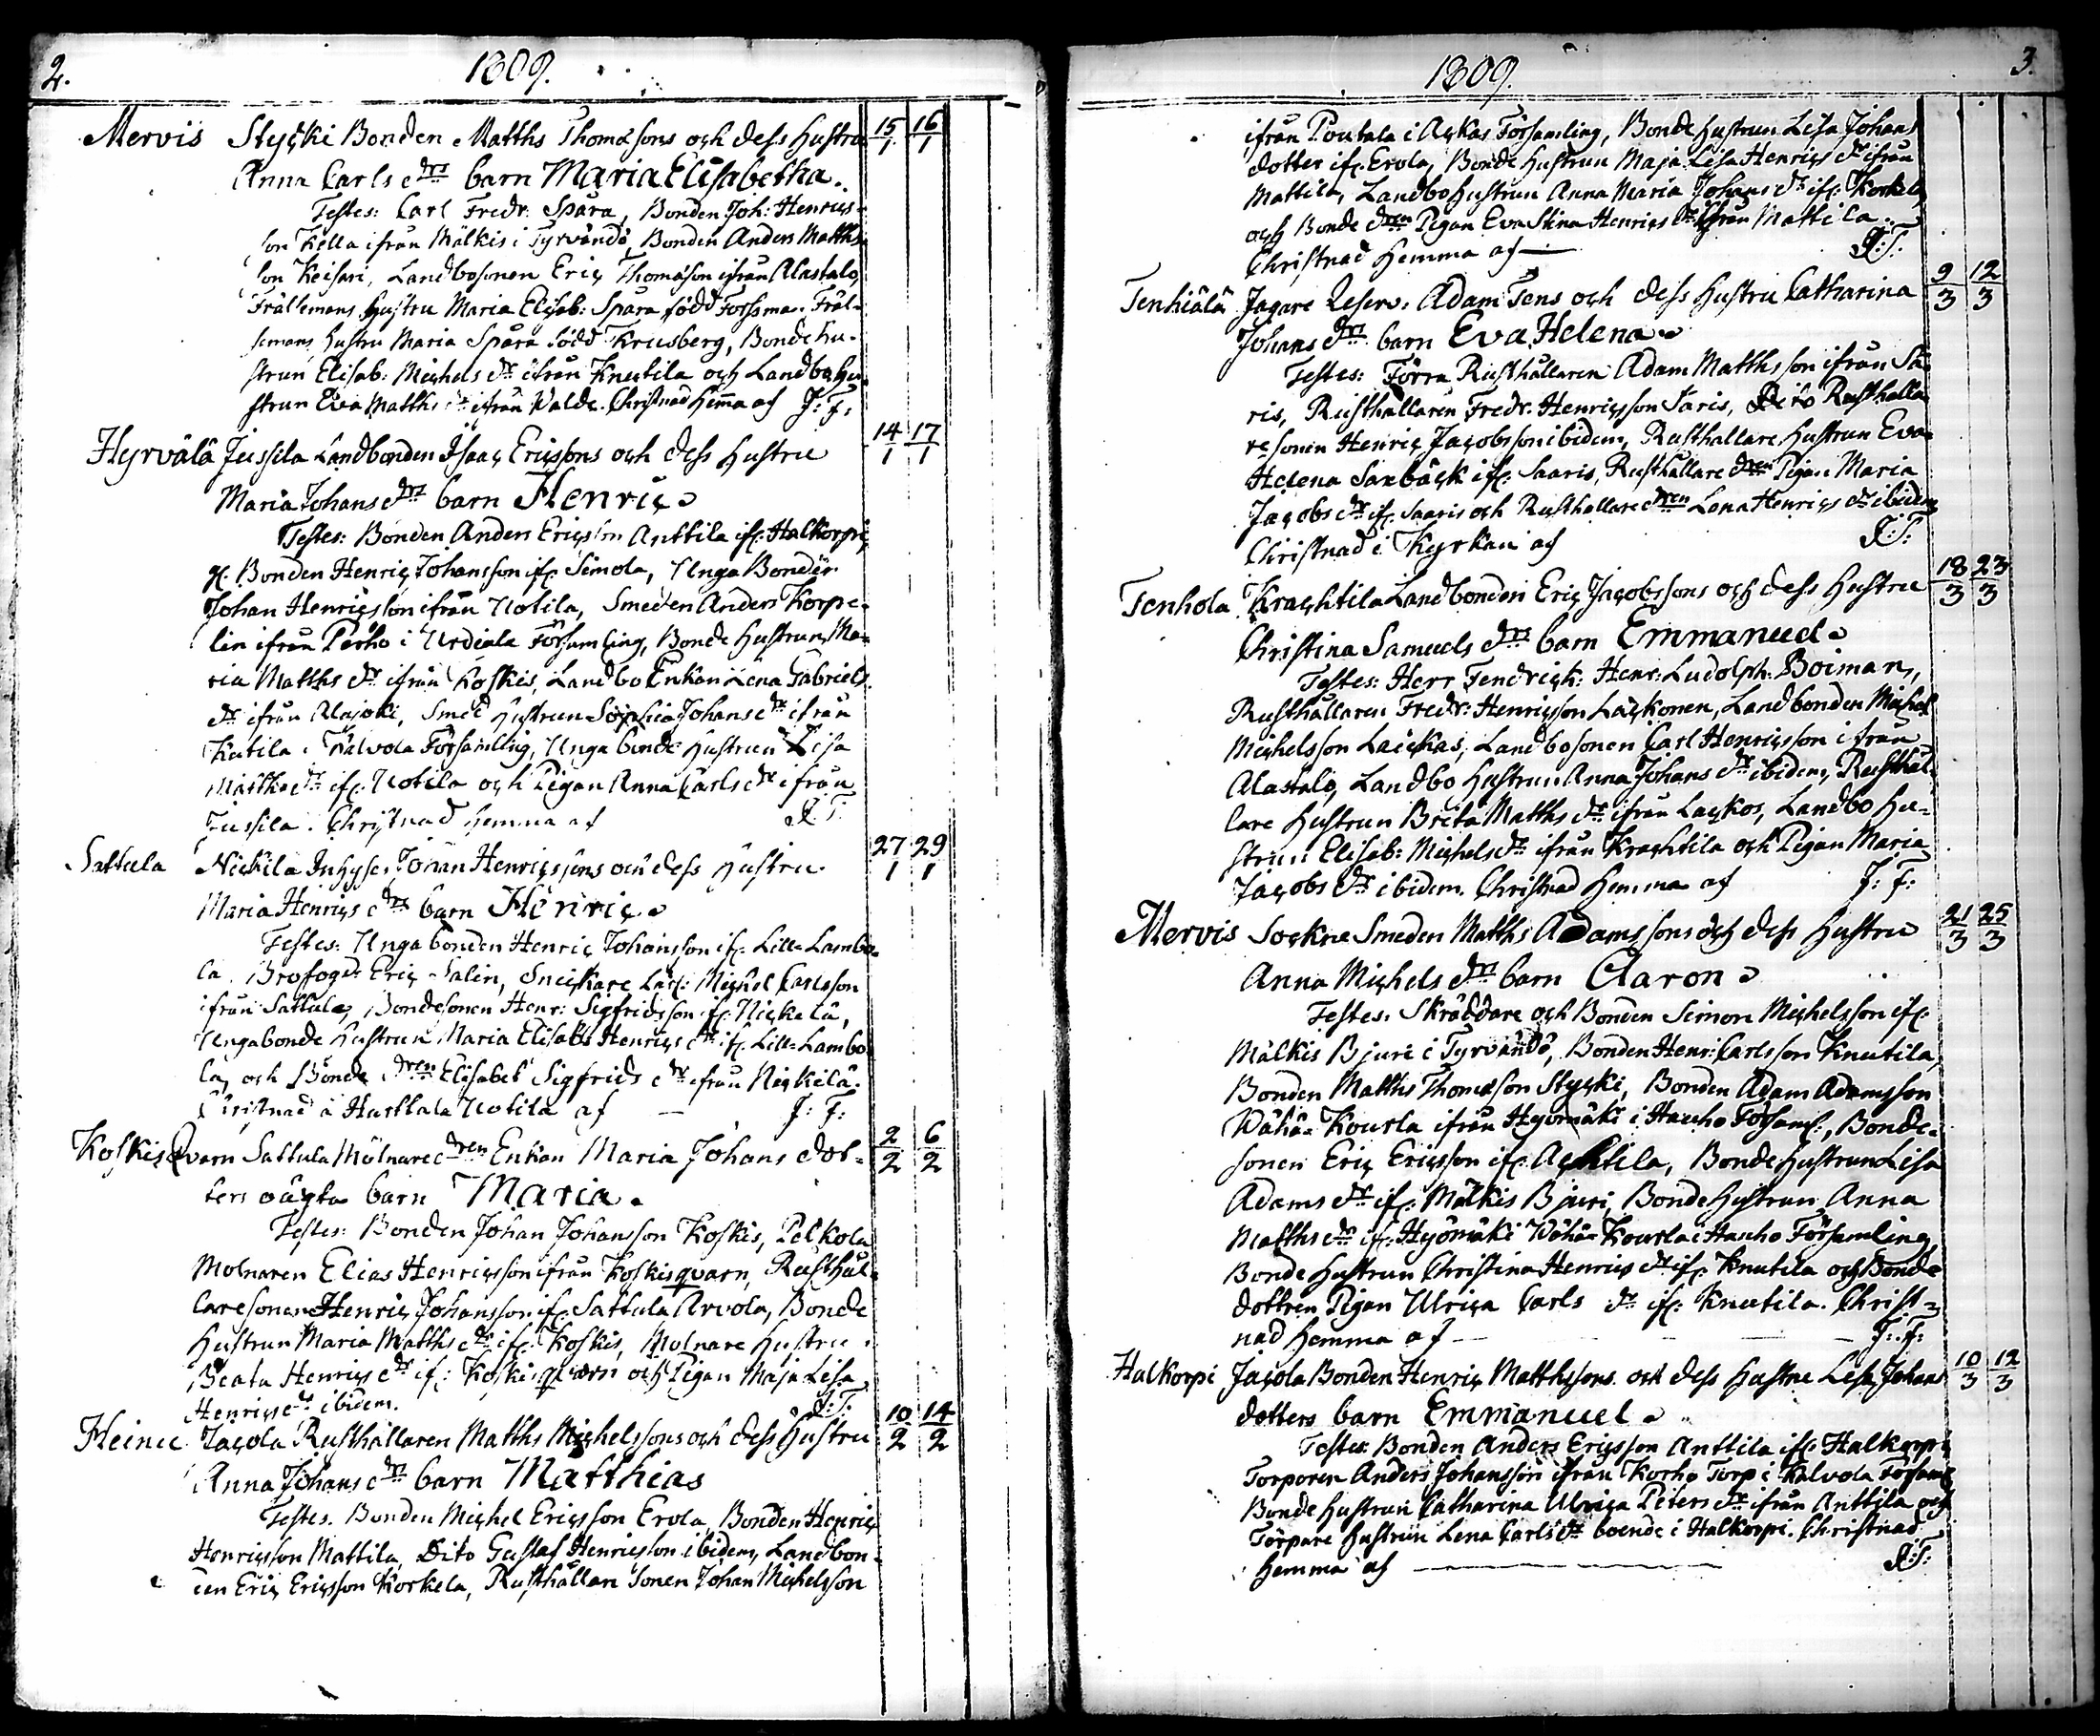 2.
1809.
Mervis Stycki Bonden Matths Thomæsons och dess hustru 15/1 16/1
Anna Carls drs barn Maria Elisabetha.
Testes: Carl Fredr: Spåra, Bonden Joh: Henrics-
son Kella ifrån Mälkis i Tyrvändö, Bonden Anders Matths
son Keisari, Landbosonen Eric Thomæson ifrån Alastalo,
Frälsemans hustru Maria Elisab: Spåra född Forssman, Fräl-
semans hustru Maria Spåra född Krusberg, Bondehu-
strun Elisab: Michels dr ifrån Knutila och Landbohu-
strun Eva Matths dr ifrån Walde. Christnad hemma af J: F:
Hyrvälä Jussila Landbonden Isaac Ericssons och dess hustru 14/1 17/1
Maria Johans drs barn Henric.
Testes: Bonden Anders Ericsson Anttila ifr. Halkorpi,
gl. Bonden Henric Johansson ifr. Simola, Unga Bonden
Johan Henricsson ifrån Uotila, Smeden Anders Korpe-
lin ifrån Perho i Urdiala Församling, Bonde hustrun Ma-
ria Matths dr ifrån Koskis, Landbo Enkan Lena Gabriels
dr ifrån Alajoki, Smed hustrun Sophia Johans dr ifrån
Kutila i Kalvola Församling, Unga bonde hustrun Lisa
Matths dr ifr. Uotila och Pigan Anna Carls dr ifrån
Jussila. Christnad hemma af J: F:
Sattula Nickila Inhyses Johan Henricssons och dess hustru 27/1 29/1
Maria Henrics drs barn Henric.
Testes: Unga bonden Henric Johansson ifr. Lill-Lambo-
la, Brofogd: Eric Salin, Snickare Lärl: Michel Carlsson
ifrån Sattula, Bondesonen Henr: Sigfridsson ifr. Nickilä,
Unga bonde hustrun Maria Elisab: Henrics dr ifr. Lill-Lambo-
la, och Bonde dren Elisabet Sigfrids dr ifrån Nickilä.
Christnad å Hurttala Uotila af — J: F:
Koskis Qvarn Sattula Mölnare dren Enkan Maria Johans dot- 2/2 6/2
ters oäckta barn Maria.
Testes: Bonden Johan Johansson Koskis, Pelkola
Molnaren Elias Henricsson ifrån Koskis qvarn, Rusthål-
lare sonen Henric Johansson ifr. Sattula Arvola, Bonde
hustrun Maria Matths dr ifr. Koskis, Molnare hustru
Beata Henrics dr ifr: Koskis qvarn och Pigan Maja Lisa
Henrics dr ibidem. J: F:
Heinu Jacola Rusthållaren Matths Michelssons och dess hustru 10/2 14/2
Anna Johans drs barn Matthias
Testes. Bonden Michel Ericsson Erola, Bonden Henric
Henricsson Mattila, Dito Gustaf Henricsson ibidem, Landbon-
den Eric Ericsson Korkela, Rusthållare sonen Johan Michelsson
3.
1809.
ifrån Poutala i Ackas Församling, Bonde hustrun Lisa Johans
dotter ifr. Erola, Bonde hustrun Maja Lisa Henrics dr ifrån
Mattila, Landbo hustrun Anna Maria Johans dr ifr. Korkela,
och Bonde dren Pigan Eva Stina Henrics dr ifrån Mattila.
Christnad hemma af — J: F:
Tenhiälä Jagare Reserv: Adam Tens och dess hustru Catharina 9/3 12/3
Johans drs barn Eva Helena.
Testes: Förra Rusthållaren Adam Matthsson ifrån Sa-
ris, Rusthållaren Fredr. Henricsson Saris, Dito Rusthålla-
re sonen Henric Jacobsson ibidem, Rusthållare hustrun Eva
Helena Saxbäck ifr. Saaris, Rusthållare dren Pigan Maria
Jacobs dr ifr. Saaris och Rusthållare dren Lena Henrics dr ibidem
Christnad i Kyrkan af J: F:
Tenhola Krachtila Landbonden Eric Jacobssons och dess hustru 18/3 23/3
Christina Samuels drs barn Emmanuel.
Testes: Herr Fendrick: Henr: Ludolph: Boiman,
Rusthållaren Fredr: Henricsson Lackonen, Landbonden Michel
Michelsson Laickas, Landbosonen Carl Henricsson ifrån
Alastalo, Landbo hustrun Anna Johans dr ibidem, Rusthål-
lare hustrun Brita Matths dr ifrån Lackos, Landbo hu-
strun Elisab: Michels dr ifrån Krachtila och Pigan Maria
Jacobs dr ibidem. Christnad hemma af J: F:
Mervis Sockne Smeden Matths Adamssons och dess hustru 21/3 25/3
Anna Michels drs barn Aaron.
Testes: Skräddare och Bonden Simon Michelsson ifr.
Mälkis Bjuri i Tyrvändö, Bonden Henr: Carlsson Knutila,
Bonden Matths Thomæson Stycki, Bonden Adam Adamsson
Wähä-Kourla ifrån Hyömäki i Hauho Församl:, Bonde-
sonen Eric Ericsson ifr. Achtila, Bonde hustrun Lisa
Adams dr ifr: Mälkis Bjuri, Bonde hustrun Anna
Matths dr ifr: Hyömäki Wähä-Kourla i Hauho Församling,
Bonde hustrun Christina Henrics dr ifr. Knutila och Bonde
dottren Pigan Ulrica Carls dr ifr. Knutila. Christ-
nad hemma af — J: F:
Halkorpi Jacola Bonden Henric Matthssons och dess hustru Lisa Johans 10/3 12/3
dotters barn Emmanuel.
Testes: Bonden Anders Ericsson Anttila ifr. Halkorpi,
Torparen Anders Johansson ifrån Korho Torp i Kalvola Församl:
Bonde hustrun Catharina Ulrica Peters dr ifrån Anttila och
Torpare hustrun Lena Carls dr boende i Halkorpi. Christnad
hemma af — J: F: